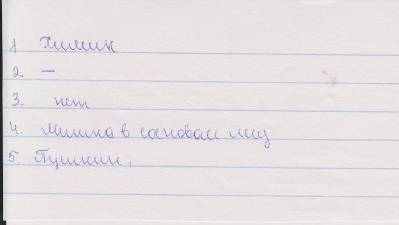 1 Химик
2. —
3. нет
4. Мишка в сосновом лесу
5. Пушкин.